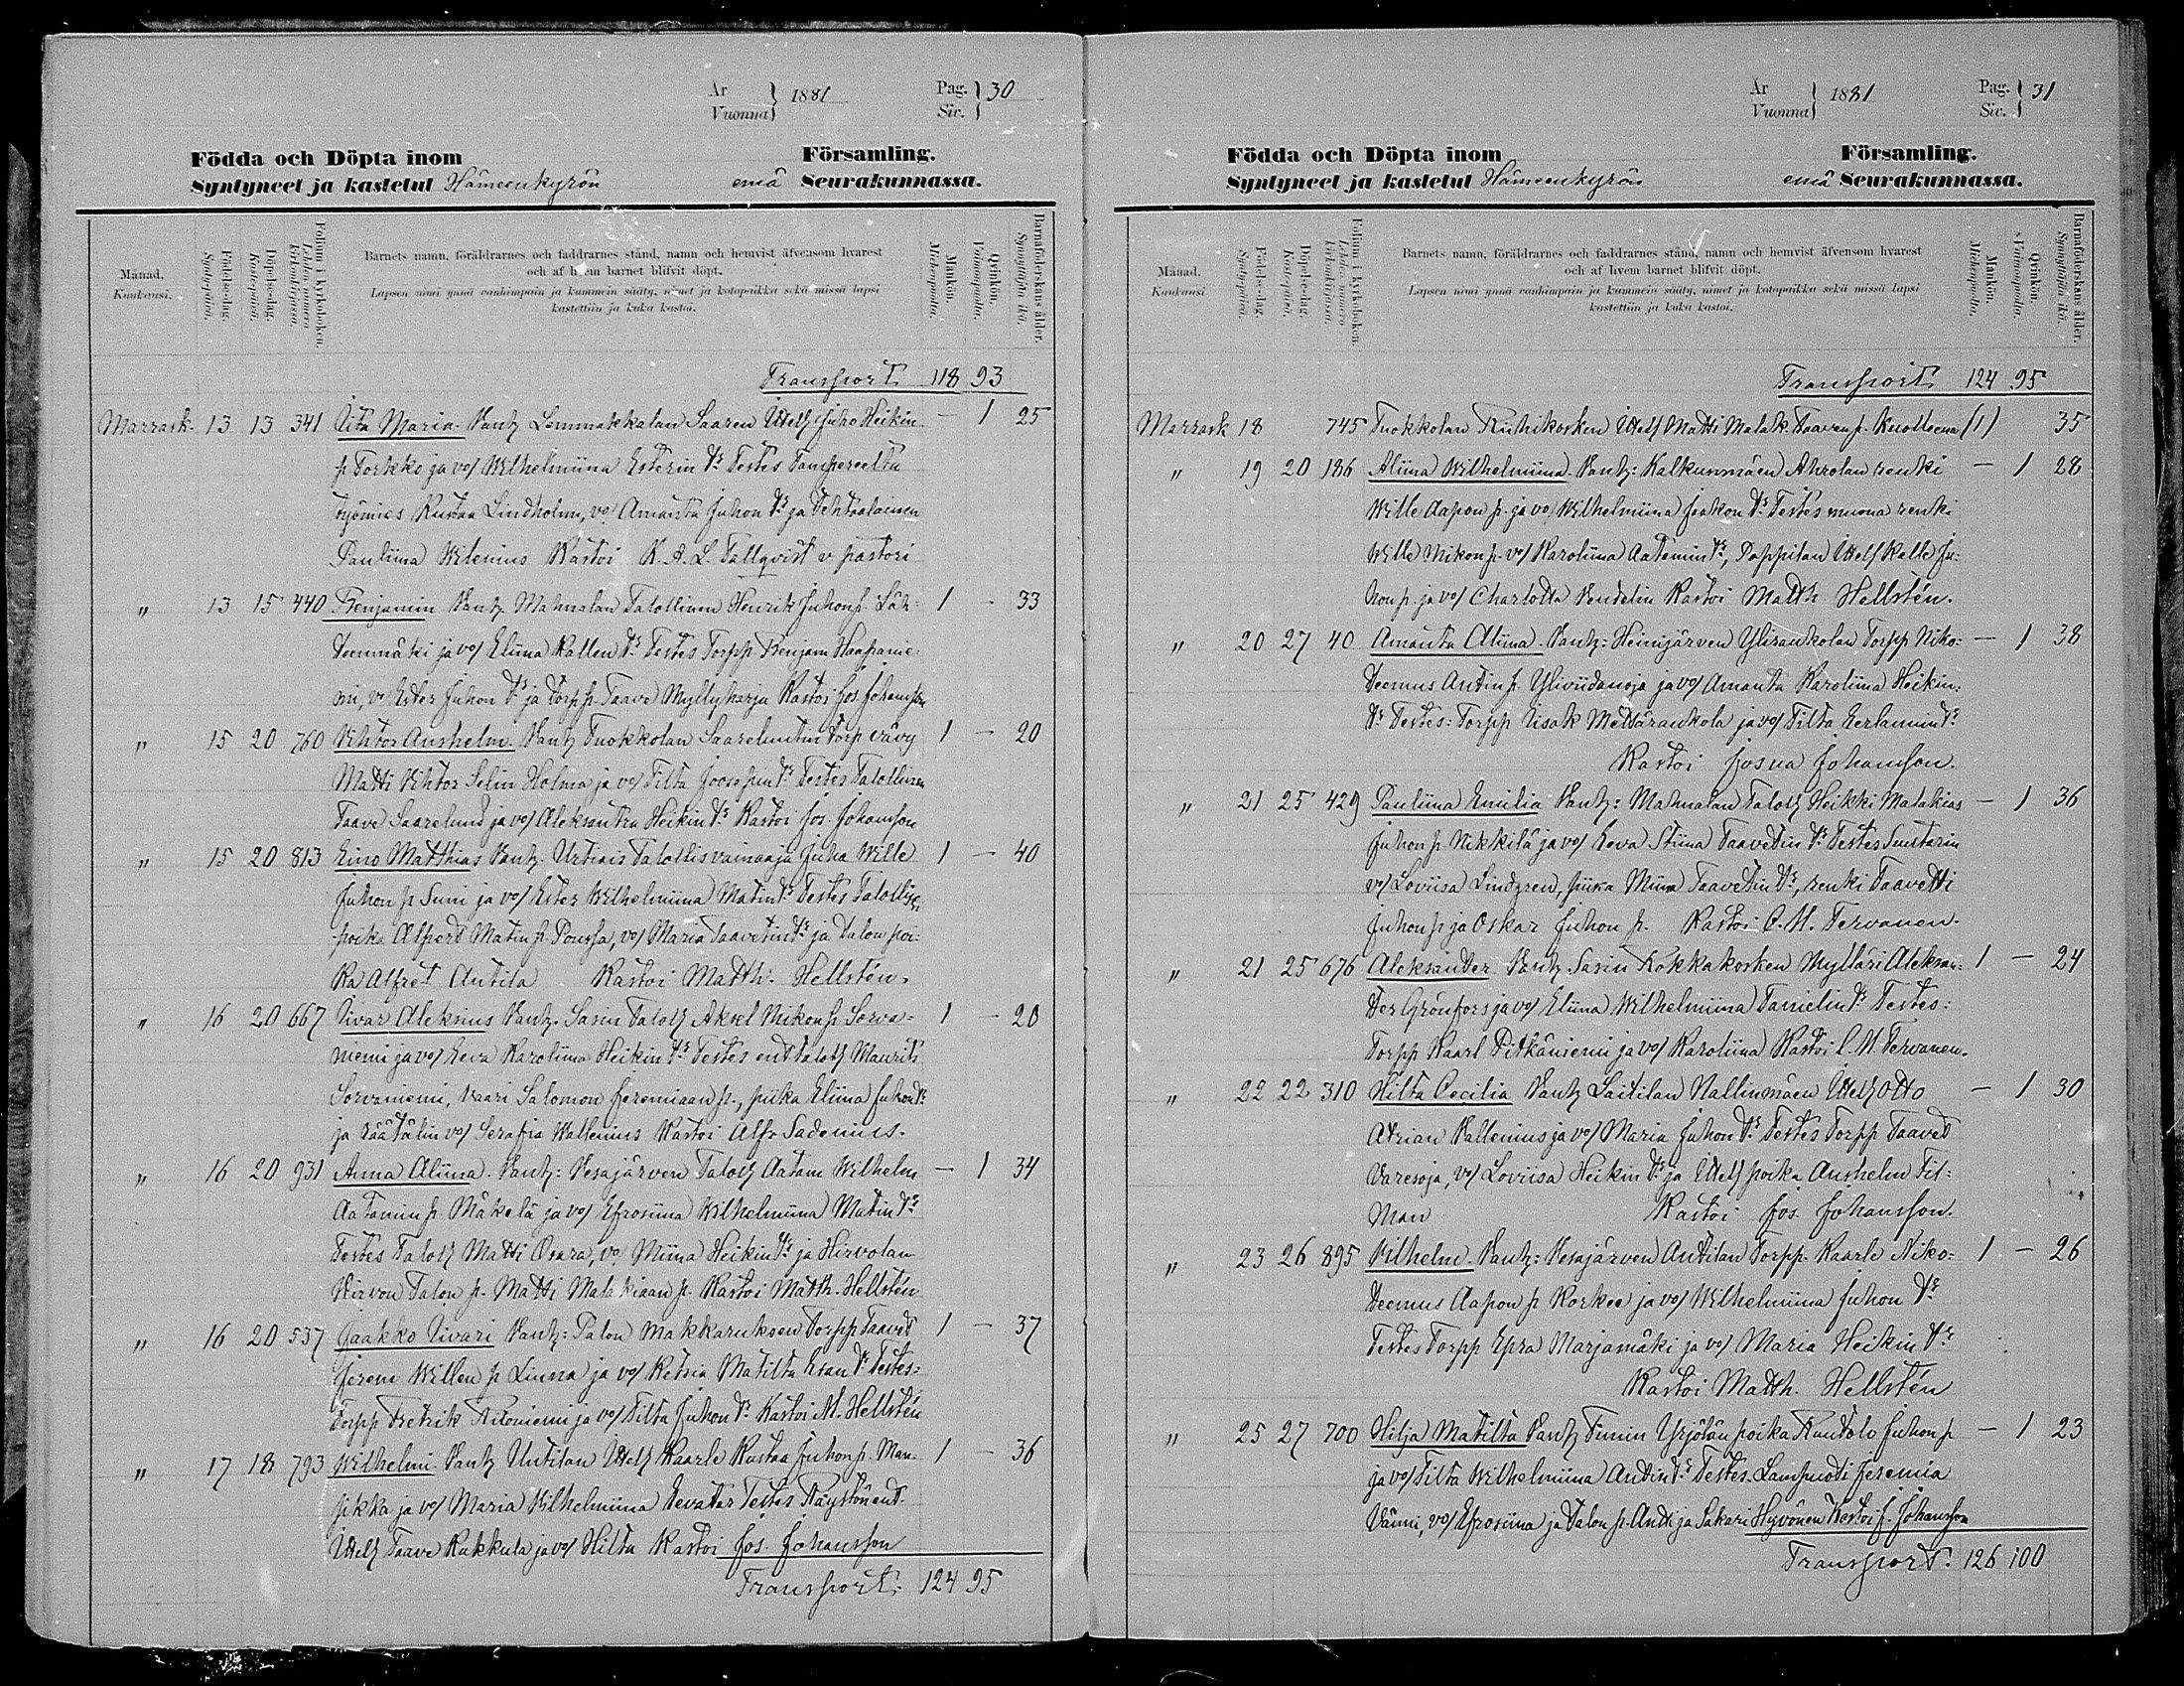 År
Vuonna } 1881
Pag.
Siv. } 30
Födda och Döpta inom Församling.
Syntyneet ja kastetut Hämeenkyrön emä Seurakunnassa.
Månad.
Kuukausi.
Födelse-dag.
Syntypäivä.
Döpelse-dag.
Kastepäivä.
Folium i kyrkoboken.
Lehden numero kirkonkirjassa.
Barnets namn, föräldrarnes och faddrarnes stånd, namn och hemvist äfvensom hvarest
och af hvem barnet blifvit döpt.
Lapsen nimi ynnä vanhimpain ja kummein sääty, nimet ja kotopaikka sekä missä lapsi
kastettiin ja kuka kastoi.
Mankön.
Miehenpuolia.
Qvinkön.
Vaimonpuolia.
Barnaföderskans ålder.
Synnyttäjän ikä.
Transport 118 93
Marrask. 13 13 341 Iita Maria. Vanh. Lemmakkalan Saaren Ittell Juho Heikin — 1 25
p Torkko ja vo/ Wilhelmiina Esterin tr Testes Tampereelta
työmies Kustaa Lindholm, vo/ Amanta Juhon tr ja Tehtaalainen
Pauliina Witenius Kastoi K. A. L. Tallqvist v. pastori
" 13 15 440 Benjamin Vanh Mahnalan Talollinen Henrik Juhon p. Läh- 1 — 33
teenmäki ja vo/ Eliina Kallen tr Testes Torpp Benjam Haapanie-
mi, vo Ester Juhon tr ja torpp. Taave Myllyharju Kastoi Jos Johansson
" 15 20 760 Vihtor Anshelm. Vanh Tuokkolan Saarelunttin Torp vävy 1 — 20
Matti Vihtor Selin Holma ja vo/ Tilta Joosepin tr Testes Talollinen
Taave Saarelund ja vo/ Aleksantra Heikin tr Kastoi Jos. Johansson
" 15 20 813 Eino Matthias Vanh. Urtiais Talollis vainaaja Juha Wille 1 — 40
Juhon p Suni ja vo/ Ester Wilhelmiina Matin tr Testes Talollisen
poika Alpert Matin p. Poussa, vo/ Maria Taavetin tr ja talon poi-
ka Alfret Antila Kastoi Matth. Hellstén.
" 16 20 667 Iivar Aleksius Vanh. Sasin Talol Aksel Nikon p Sorva- 1 — 20
niemi ja vo/ Eeva Karoliina Heikin tr Testes ent talol Maurits
Sorvaniemi, vaari Salomon Jeremiaan p., piika Eliina Juhon tr
ja räätälin vo/ Serafia Wallenius Kastoi Alfr Sadenius.
" 16 20 931 Anna Aliina. Vanh: Vesajärven Talol Aatam Wilhelm — 1 34
Aatamin p. Mäkelä ja vo/ Efrosiina Wilhelmiina Matin tr
Testes Talol Matti Osara, vo/ Miina Heikin tr ja Hirvolan
Hirvon Talon p. Matti Malakiaan p. Kastoi Matth. Hellstén
" 16 20 537 Jaakko Iivari Vanh: Palon Makkaruksen Torpp Taavet 1 — 37
Jerem Willen p Linna ja vo/ Retsia Matilta Esan tr Testes:
Torpp Fretrik Riioniemi ja vo/ Tilta Juhon tr Kastoi M. Hellstén
" 17 18 793 Wilhelmi. Vanh Untilan Ittell Kaarle Kustaa Juhon p. Man- 1 — 36
sikka ja vo/ Maria Vilhelmiina Eevatar Testes Räystön ent.
Ittell Taave Kukkula ja vo/ Hilta Kastoi Jos. Johansson
Transport. 124 95
År
Vuonna } 1881
Pag.
Siv. } 31
Födda och Döpta inom Församling.
Syntyneet ja kastetut Hämeenkyrön emä Seurakunnassa.
Månad.
Kuukausi.
Födelse-dag.
Syntypäivä.
Döpelse-dag.
Kastepäivä.
Folium i kyrkoboken.
Lehden numero kirkonkirjassa.
Barnets namn, föräldrarnes och faddrarnes stånd, namn och hemvist äfvensom hvarest
och af hvem barnet blifvit döpt.
Lapsen nimi ynnä vanhimpain ja kummein sääty, nimet ja kotopaikka sekä missä lapsi
kastettiin ja kuka kastoi.
Mankön.
Miehenpuolia.
Qvinkön.
Vaimonpuolia.
Barnaföderskans ålder.
Synnyttäjän ikä.
Transport. 124 95
Marrask 18 745 Tuokkolan Riihikosken Ittell Matti Malak. Taaven p. Kuolleena (1) 35
" 19 20 186 Aliina Wilhelmiina. Vanh: Kalkunmäen Ahrolan renki — 1 28
Wille Aapon p. ja vo/ Wilhelmiina Jaakon tr Testes muona renki
Wille Nikon p. vo/ Karoliina Aatamin tr, Pappilan Ittell Kalle Ju-
hon p. ja vo/ Charlotta Vendelin Kastoi Matth Hellstén.
" 20 27 40 Amanta Aliina. Vanh: Heinijärven Yliraukolan Torpp Niko- — 1 38
teemus Antin p. Yliviidanoja ja vo/ Amanta Karoliina Heikin-
tr Testes: Torpp Eisak Metsäraukola ja vo/ Tilta Eerlannin tr
Kastoi Josua Johansson.
" 21 25 429 Pauliina Emilia Vanh: Mahnalan Talol Heikki Malakias — 1 36
Juhon p Nikkilä ja vo/ Eeva Stiina Taavetin tr Testes Suutarin
vo/ Loviisa Lindgren, piika Miina Taavetin tr, renki Taavetti
Juhon p ja Oskar Juhon p. Kastoi C. M. Tervanen.
" 21 25 676 Aleksanter Vanh. Sasin Kokkakosken Mylläri Aleksan- 1 — 24
ter Grönfors ja vo/ Eliina Wilhelmiina Tanielin tr Testes:
Torpp Kaarl Pitkäniemi ja vo/ Karoliina Kastoi C. M. Tervanen.
" 22 22 310 Hilta Cecilia Vanh Laitilan Nallinmäen Ittell Otto — 1 30
Atrian Kallenius ja vo/ Maria Juhon tr Testes Torpp Taavet
Varesoja, vo/ Loviisa Heikin tr ja Ittell poika Anshelm Tit-
man Kastoi Jos. Johansson.
" 23 26 895 Vilhelm. Vanh: Vesajärven Antilan Torpp. Kaarle Niko- 1 — 26
teemus Aapon p Korkee ja vo/ Wilhelmiina Juhon tr
Testes Torpp Epra Marjamäki ja vo/ Maria Heikin tr
Kastoi Matth. Hellstén
" 25 27 700 Hilja Matilta Vanh Timin Yrjölän poika Ruutolo Juhon p — 1 23
ja vo/ Tilta Wilhelmiina Antin tr Testes. Lampuoti Jeremia
Vänni, vo/ Efrosiina ja talon p. Antti ja Sakari Hyvönen Kastoi J. Johansson
Transport. 126 100